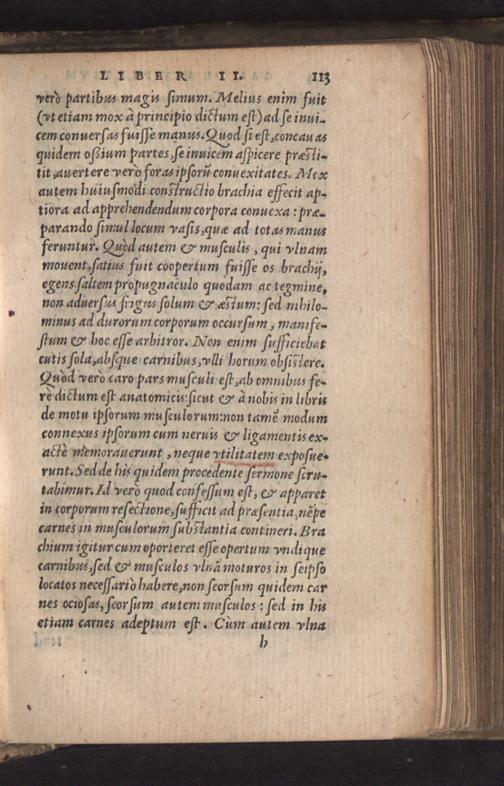 LIBER II. 113
verò partibus magis simum. Melius enim fuit
(vt etiam mox à principio dictum est) ad se inui-
cem conuersas fuisse manus. Quod si est, concauas
quidem ossium partes, se inuicem aspicere præsti-
tit, auertere verò foras ipsorũ conuexitates. Mox
autem huiusmodi constructio brachia effecit ap-
tiora ad apprehendendum corpora conuexa: præ-
parando simul locum vasis, quæ ad totas manus
feruntur. Quòd autem & musculis, qui vlnam
mouent, satius fuit coopertum fuisse os brachij,
egens saltem propugnaculo quodam ac tegmine,
non aduersus frigus solum & æstum: sed nihilo-
minus ad durorum corporum occursum, manife-
stum & hoc esse arbitror. Non enim sufficiebat
cutis sola, absque carnibus, vlli horum obsistere.
Quòd verò caro pars musculi est, ab omnibus fe-
rè dictum est anatomicis: sicut & à nobis in libris
de motu ipsorum musculorum: non tamẽ modum
connexus ipsorum cum neruis & ligamentis ex-
actè memorauerunt, neque vtilitatem exposue-
runt. Sed de his quidem procedente sermone scru-
tabimur. Id verò quod confessum est, & apparet
in corporum resectione, sufficit ad præsentia, nẽpe
carnes in musculorum substantia contineri. Bra
chium igitur cum oporteret esse opertum vndique
carnibus, sed & musculos vlnã moturos in seipso
locatos necessariò habere, non seorsum quidem car
nes ociosas, seorsum autem musculos: sed in his
etiam carnes adeptum est. Cùm autem vlna
h